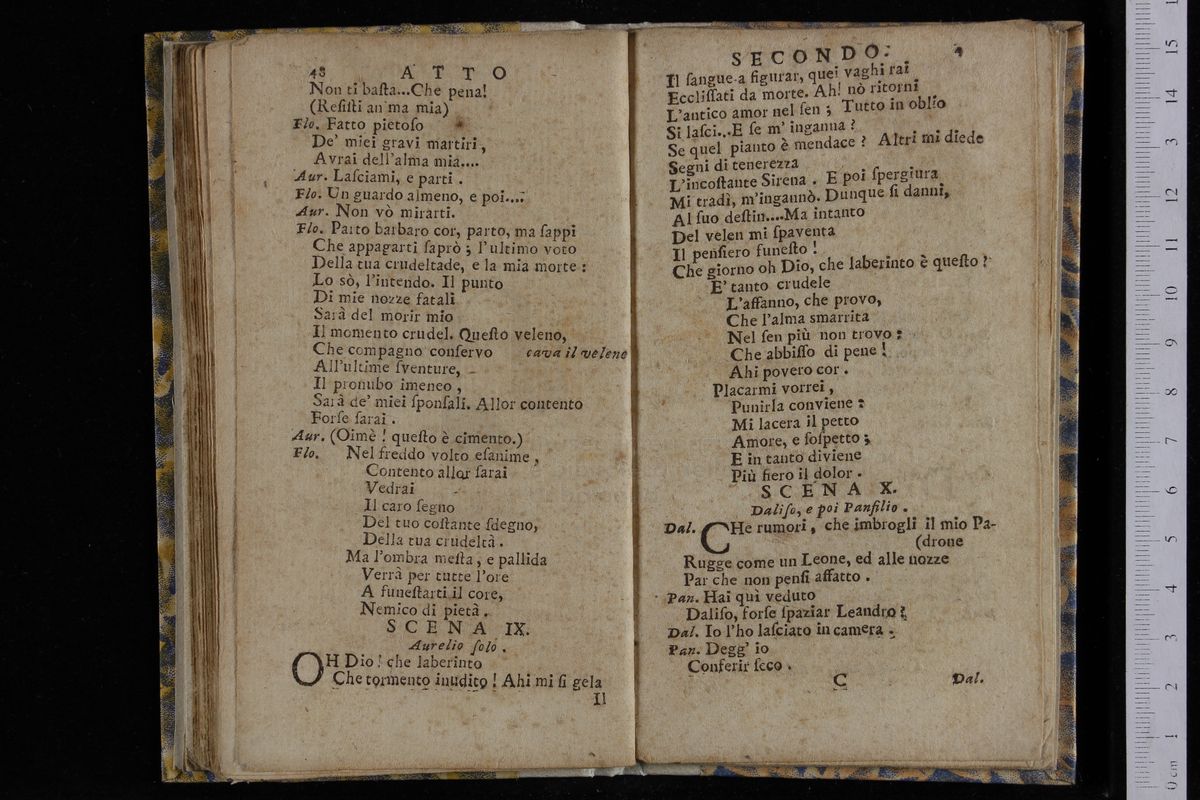 48 ATTO
Non ti baſta...Che pena!
(Reſiſti an'ma mia)
Flo. Fatto pietoſo
De' miei gravi martiri,
Avrai dell'alma mia....
Aur. Laſciami, e parti.
Flo. Un guardo almeno, e poi....
Aur. Non vò mirarti.
Flo. Parto barbaro cor, parto, ma ſappi
Che appagarti ſaprò; l'ultimo voto
Della tua crudeltade, e la mia morte:
Lo sò, l'intendo. Il punto
Di mie nozze fatali
Sarà del morir mio
Il momento crudel. Queſto veleno,
Che compagno conſervo cava il velene
All'ultime ſventure,
Il pronubo imeneo,
Sarà de' miei ſponſali. Allor contento
Forſe ſarai.
Aur. (Oimè! queſto è cimento.)
Flo. Nel freddo volto eſanime,
Contento allor ſarai
Vedrai
Il caro ſegno
Del tuo coſtante ſdegno,
Della tua crudeltà.
Ma l'ombra meſta, e pallida
Verrà per tutte l'ore
A funeſtarti il core,
Nemico di pietà.
SCENA IX.
Aurelio ſolo.
OH Dio! che laberinto
Che tormento inudito! Ahi mi ſi gela
Il
SECONDO. 4
Il ſangue a figurar, quei vaghi rai
Eccliſſati da morte. Ah! nò ritorni
L'antico amor nel ſen; Tutto in oblio
Si laſci...E ſe m'inganna?
Se quel pianto è mendace? Altri mi diede
Segni di tenerezza
L'incoſtante Sirena. E poi ſpergiura
Mi tradì, m'ingannò. Dunque ſi danni,
Al ſuo deſtin....Ma intanto
Del velen mi ſpaventa
Il penſiero funeſto!
Che giorno oh Dio, che laberinto è queſto?
E' tanto crudele
L'affanno, che provo,
Che l'alma smarrita
Nel ſen più non trovo:
Che abbiſſo di pene!
Ahi povero cor.
Placarmi vorrei,
Punirla conviene:
Mi lacera il petto
Amore, e ſoſpetto;
E in tanto diviene
Più fiero il dolor.
SCENA X.
Daliſo, e poi Panfilio.
Dal. CHe rumori, che imbrogli il mio Pa-
(drone
Rugge come un Leone, ed alle nozze
Par che non penſi affatto.
Pan. Hai quì veduto
Daliſo, forſe ſpaziar Leandro?
Dal. Io l'ho laſciato in camera.
Pan. Degg' io
Conferir ſeco.
C Dal.
0 cm 1 2 3 4 5 6 7 8 9 10 11 12 13 14 15